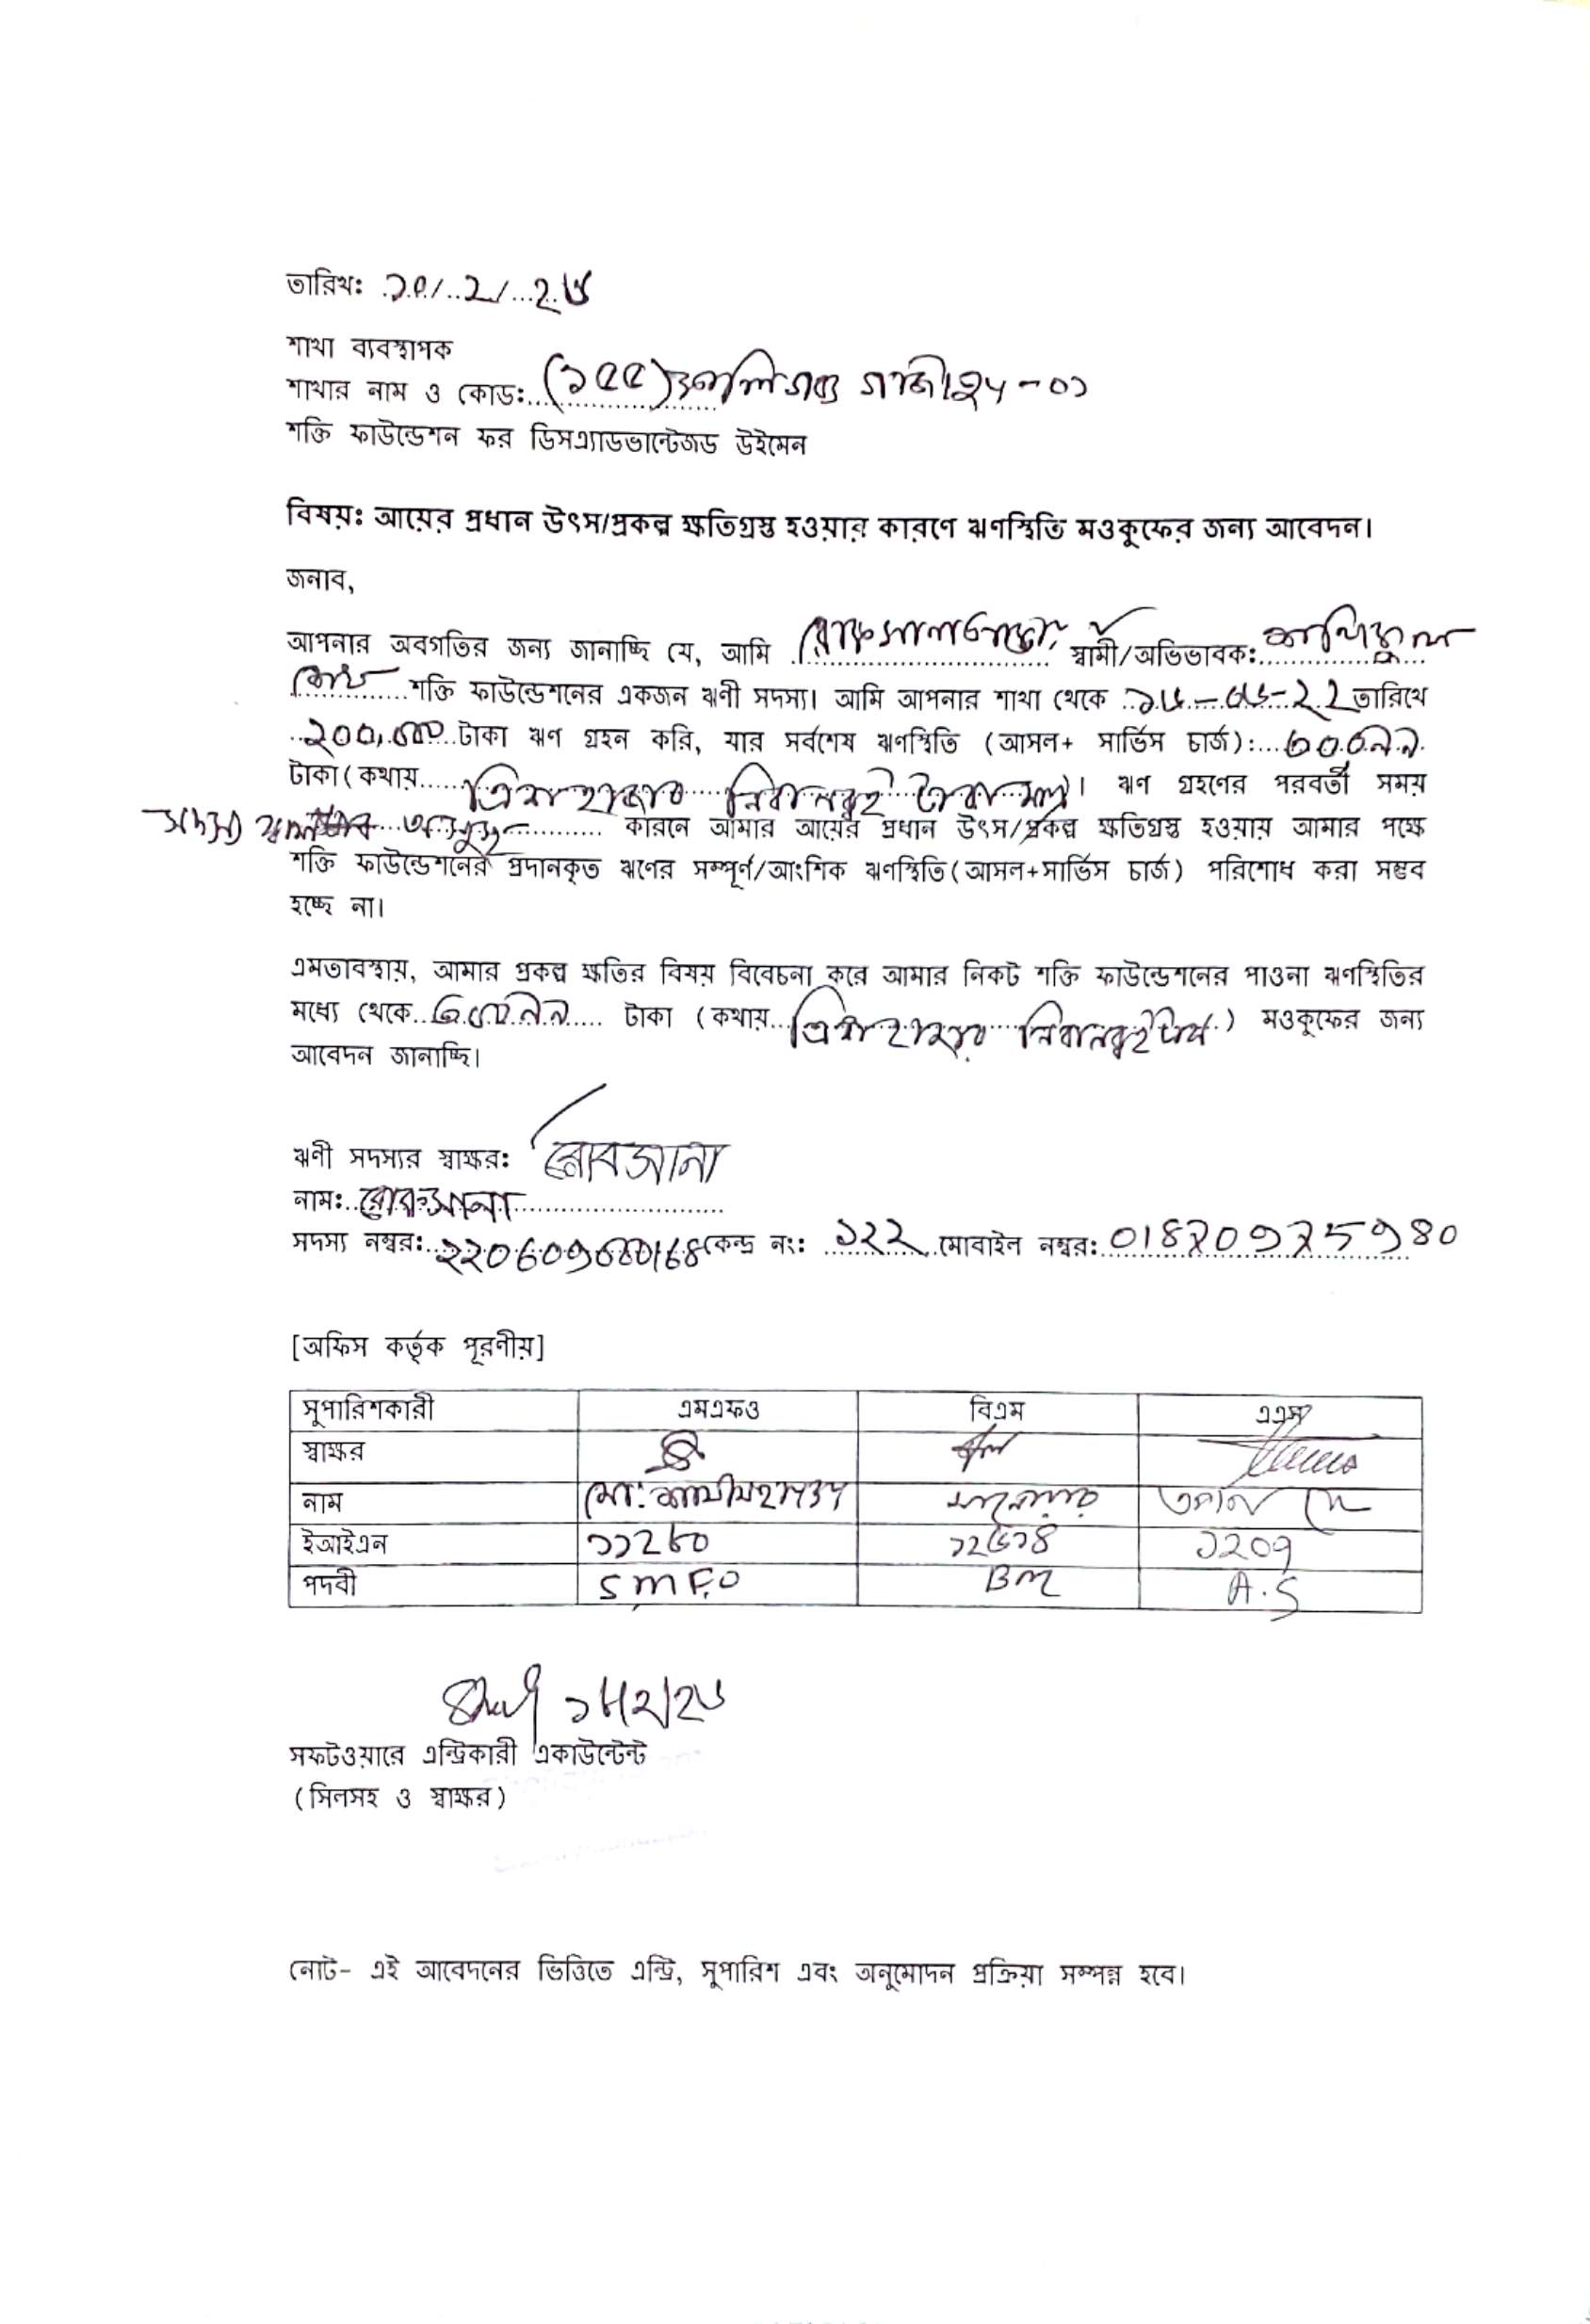 তারিখঃ ১০/২/২৬
শাখা ব্যবস্থাপক
শাখার নাম ও কোডঃ (১৫৫) কালিগঞ্জ গাজীপুর-০১
শক্তি ফাউন্ডেশন ফর ডিসএ্যাডভান্টেজড উইমেন
বিষয়ঃ আয়ের প্রধান উৎস/প্রকল্প ক্ষতিগ্রস্ত হওয়ার কারণে ঋণস্থিতি মওকুফের জন্য আবেদন।
জনাব,
আপনার অবগতির জন্য জানাচ্ছি যে, আমি স্বামী/অভিভাবকঃ
শক্তি ফাউন্ডেশনের একজন ঋণী সদস্য। আমি আপনার শাখা থেকে তারিখে
২০০,০০০ টাকা ঋণ গ্রহন করি, যার সর্বশেষ ঋণস্থিতি (আসল+ সার্ভিস চার্জ):
টাকা (কথায় ত্রিশ হাজার নিরানব্বই টাকা মাত্র)। ঋণ গ্রহণের পরবর্তী সময়
সদস্য অসুস্থ কারনে আমার আয়ের প্রধান উৎস/প্রকল্প ক্ষতিগ্রস্ত হওয়ায় আমার পক্ষে
শক্তি ফাউন্ডেশনের প্রদানকৃত ঋণের সম্পূর্ণ/আংশিক ঋণস্থিতি (আসল+সার্ভিস চার্জ) পরিশোধ করা সম্ভব
হচ্ছে না।
এমতাবস্থায়, আমার প্রকল্প ক্ষতির বিষয় বিবেচনা করে আমার নিকট শক্তি ফাউন্ডেশনের পাওনা ঋণস্থিতির
মধ্যে থেকে ৩০০৯৯ টাকা (কথায় ত্রিশ হাজার নিরানব্বই টাকা) মওকুফের জন্য
আবেদন জানাচ্ছি।
ঋণী সদস্যর স্বাক্ষরঃ রোকসানা
নামঃ রোকসানা
সদস্য নম্বরঃ কেন্দ্র নংঃ ১২২ মোবাইল নম্বরঃ
[অফিস কর্তৃক পূরণীয়]
সুপারিশকারী এমএফও বিএম এএস
স্বাক্ষর
নাম
ইআইএন ১১২৮০ ১২৬১৪ ১২০৭
পদবী SMFO BM A.S
১৮/২/২৬
সফটওয়ারে এন্ট্রিকারী একাউন্টেন্ট
(সিলসহ ও স্বাক্ষর)
নোট- এই আবেদনের ভিত্তিতে এন্ট্রি, সুপারিশ এবং অনুমোদন প্রক্রিয়া সম্পন্ন হবে।